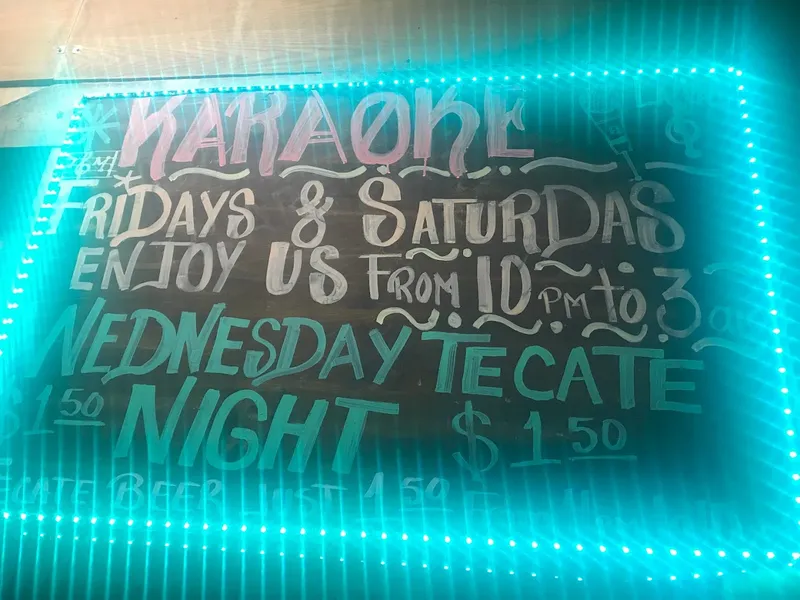 KARAOKE
FRIDAYS & SATURDAS
ENJOY US FROM 10 PM to 3 am
WEDNESDAY TECATE
$1.50 NIGHT $1.50
CATE BEER JUST 1.50